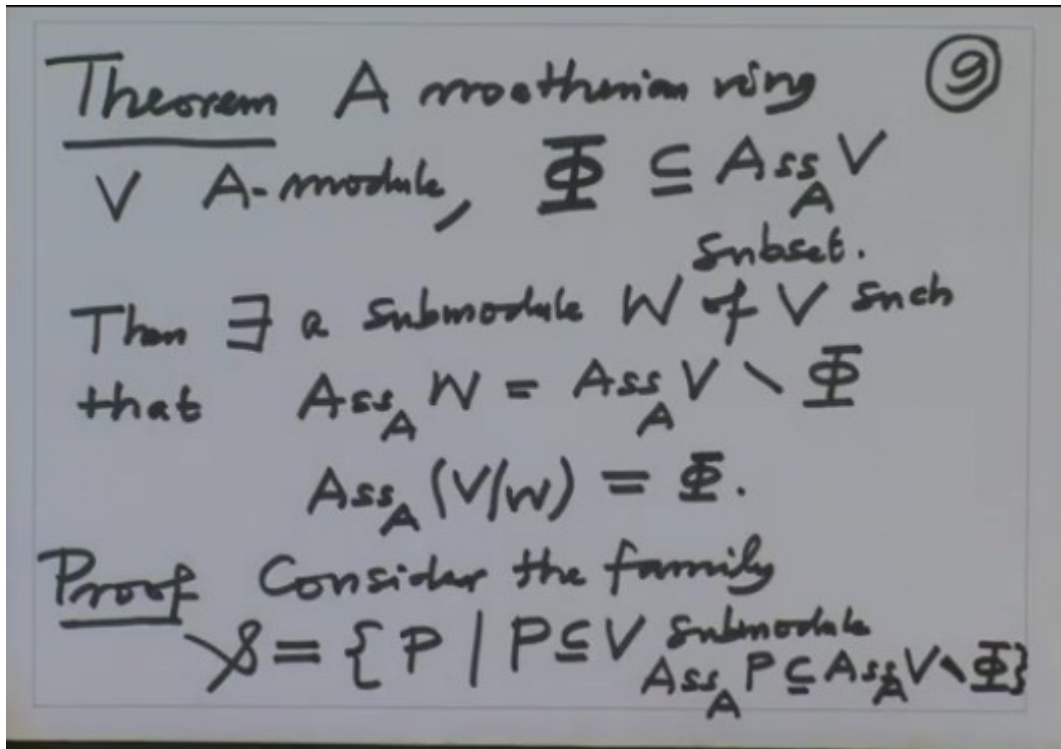 Theorem A noetherian ring ⑨
V A-module, Φ ⊆ Ass_A V
subset.
Then ∃ a submodule W of V such
that Ass_A W = Ass_A V \ Φ
Ass_A (V/W) = Φ.
Proof Consider the family
S = { P | P ⊆ V submodule
Ass_A P ⊆ Ass_A V \ Φ}